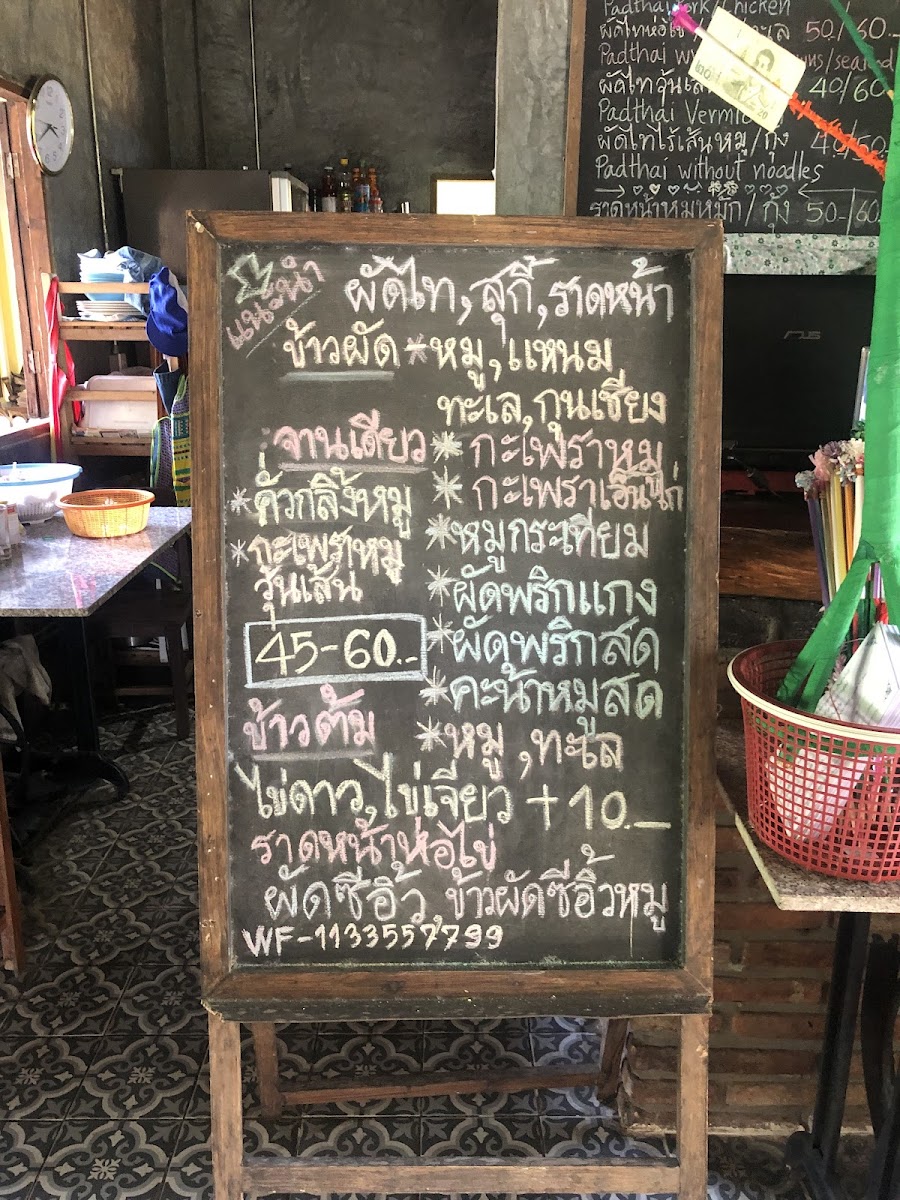 Padthai Pork/Chicken
50/60.-
Padthai
ผัดไทวุ้นเส้น 40/60
Padthai Vermi
ผัดไทไร้เส้นหมู/กุ้ง
Padthai without noodles
ราดหน้าหมูหมัก/กุ้ง 50-/60
ASUS
แนะนำ
ผัดไท,สุกี้,ราดหน้า
ข้าวผัด *หมู,แหนม
ทะเล,กุนเชียง
จานเดียว * กะเพราหมู
* คั่วกลิ้งหมู * กะเพราเอ็นไก่
* กะเพราหมู * หมูกระเทียม
วุ้นเส้น * ผัดพริกแกง
45-60.- * ผัดพริกสด
* คะน้าหมูสด
ข้าวต้ม * หมู,ทะเล
ไข่ดาว,ไข่เจียว +10.-
ราดหน้าห่อไข่
ผัดซีอิ้ว,ข้าวผัดซีอิ้วหมู
WF-1133557799